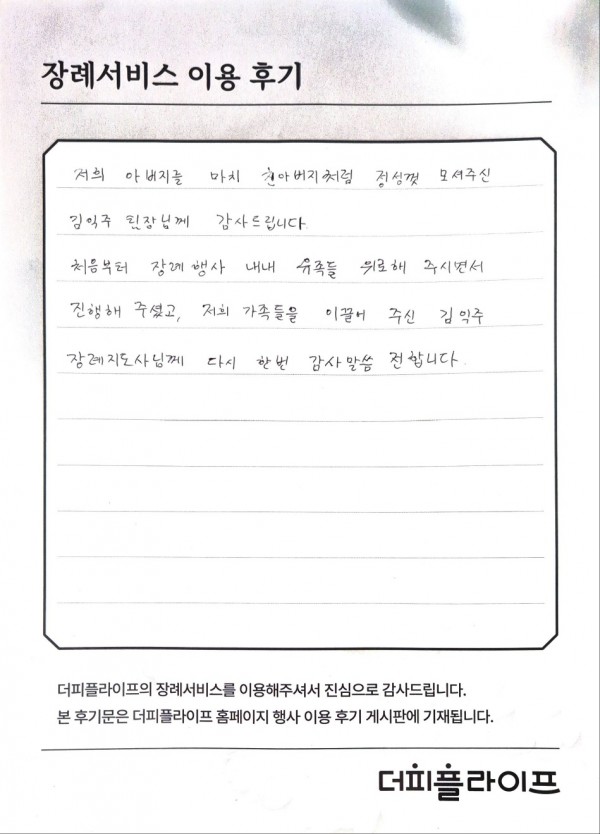 장례서비스 이용 후기
저희 아버지를 마치 친아버지처럼 정성껏 모셔주신
김익주 팀장님께 감사드립니다
처음부터 장례행사 내내 유족들 위로해 주시면서
진행해 주셨고, 저희 가족들을 이끌어 주신 김익주
장례지도사님께 다시 한번 감사말씀 전합니다.
더피플라이프의 장례서비스를 이용해주셔서 진심으로 감사드립니다.
본 후기문은 더피플라이프 홈페이지 행사 이용 후기 게시판에 기재됩니다.
더피플라이프